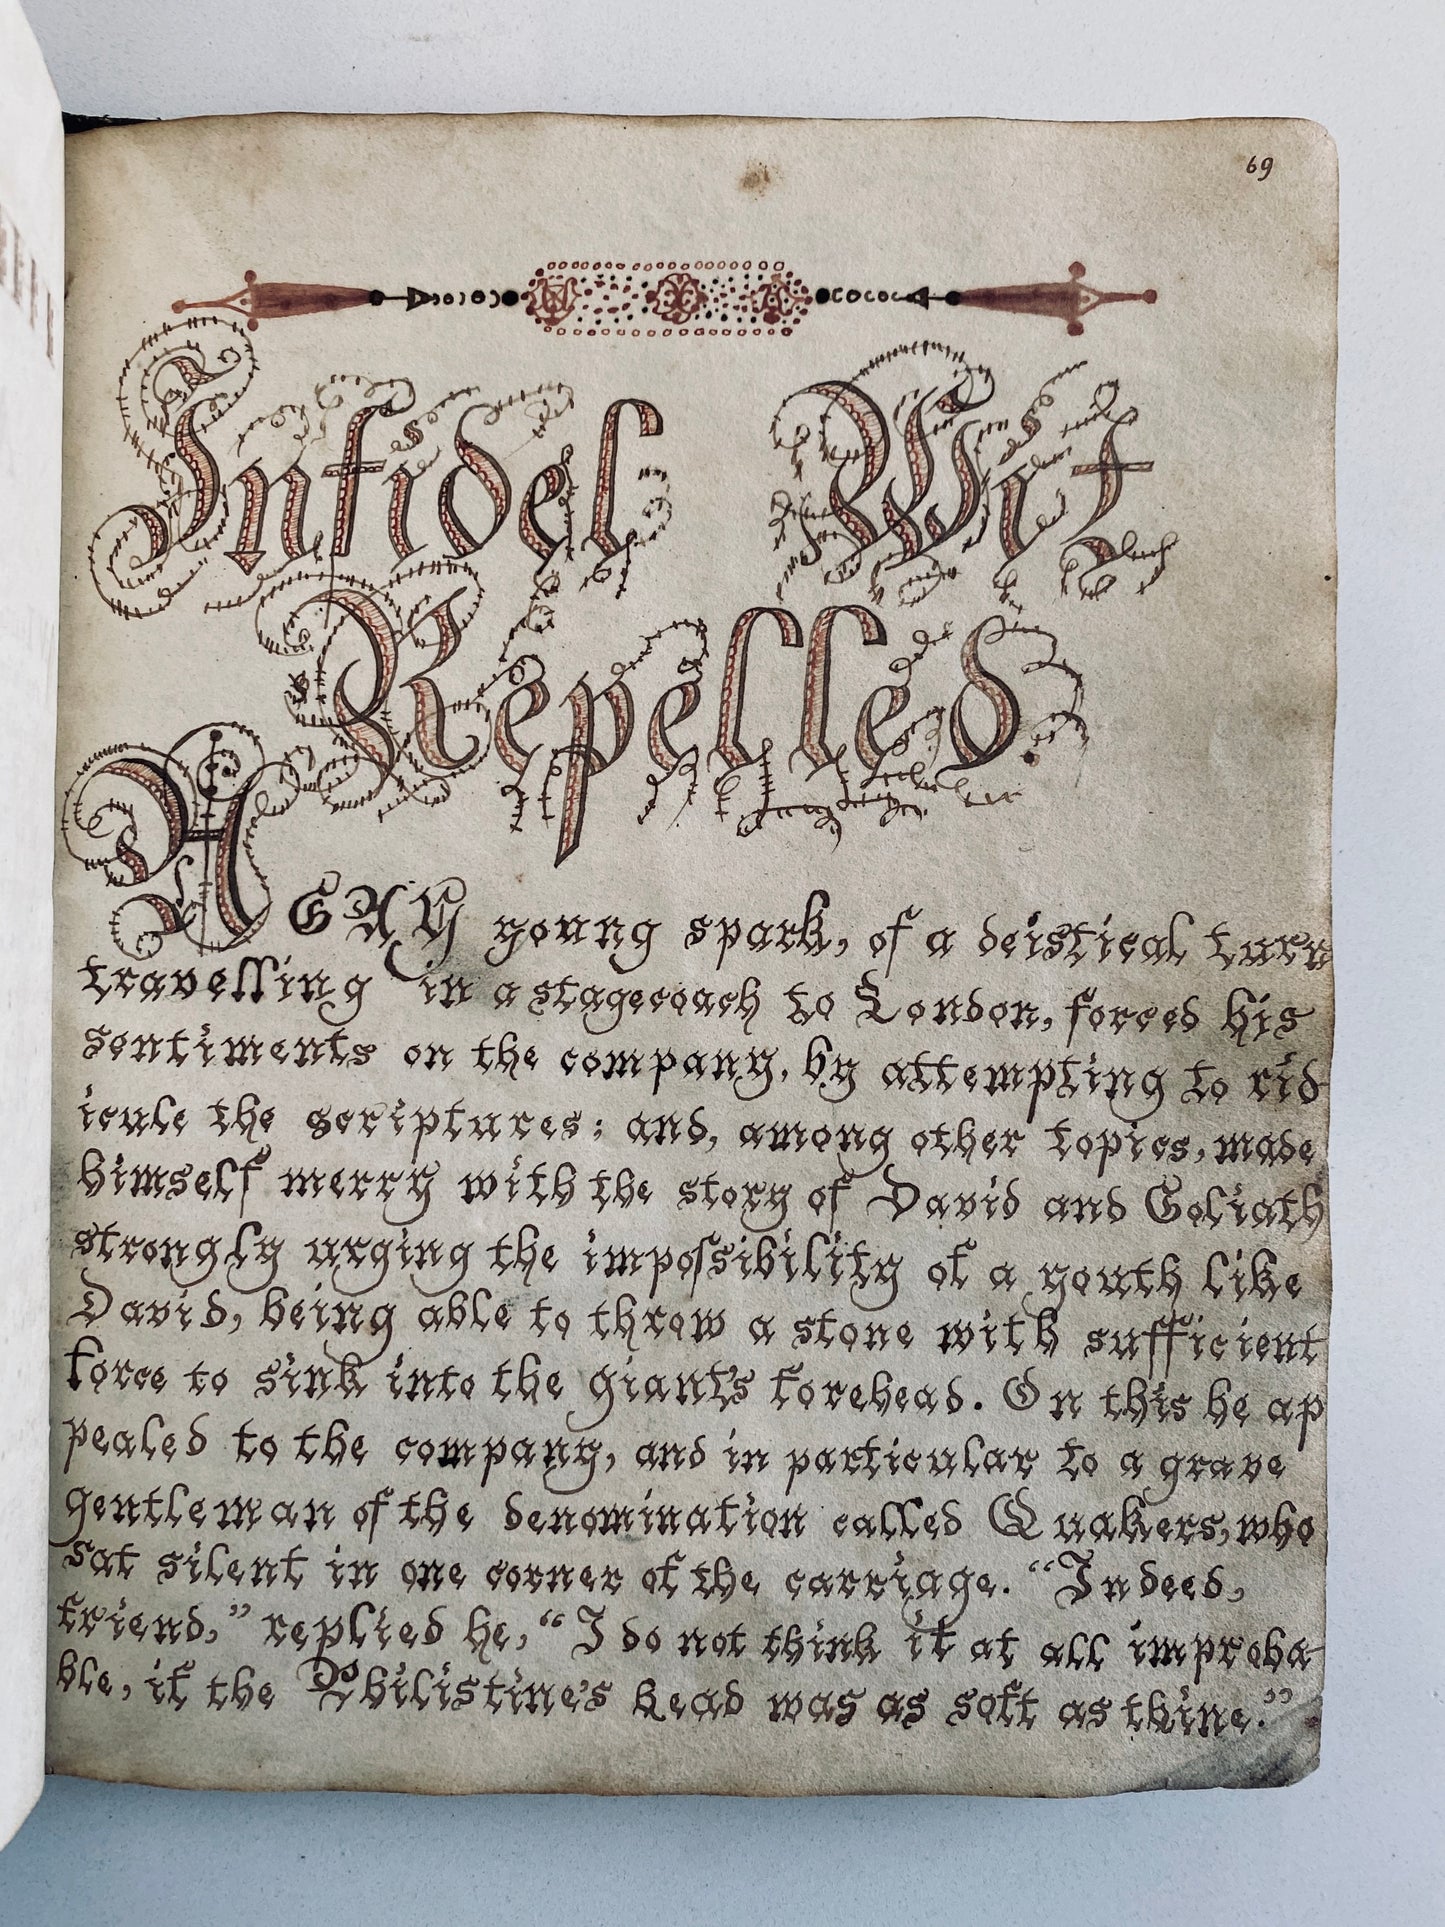 69
Infidel Wit
Repelled.
A GAY young spark, of a deistical turn
travelling in a stagecoach to London, forced his
sentiments on the company, by attempting to rid
icule the scriptures; and, among other topics, made
himself merry with the story of David and Goliath
strongly urging the impossibility of a youth like
David, being able to throw a stone with sufficient
force to sink into the giant's forehead. On this he ap
pealed to the company, and in particular to a grave
gentleman of the denomination called Quakers, who
sat silent in one corner of the carriage. “Indeed,
friend,” replied he, “I do not think it at all improba
ble, if the Philistine's head was as soft as thine.”